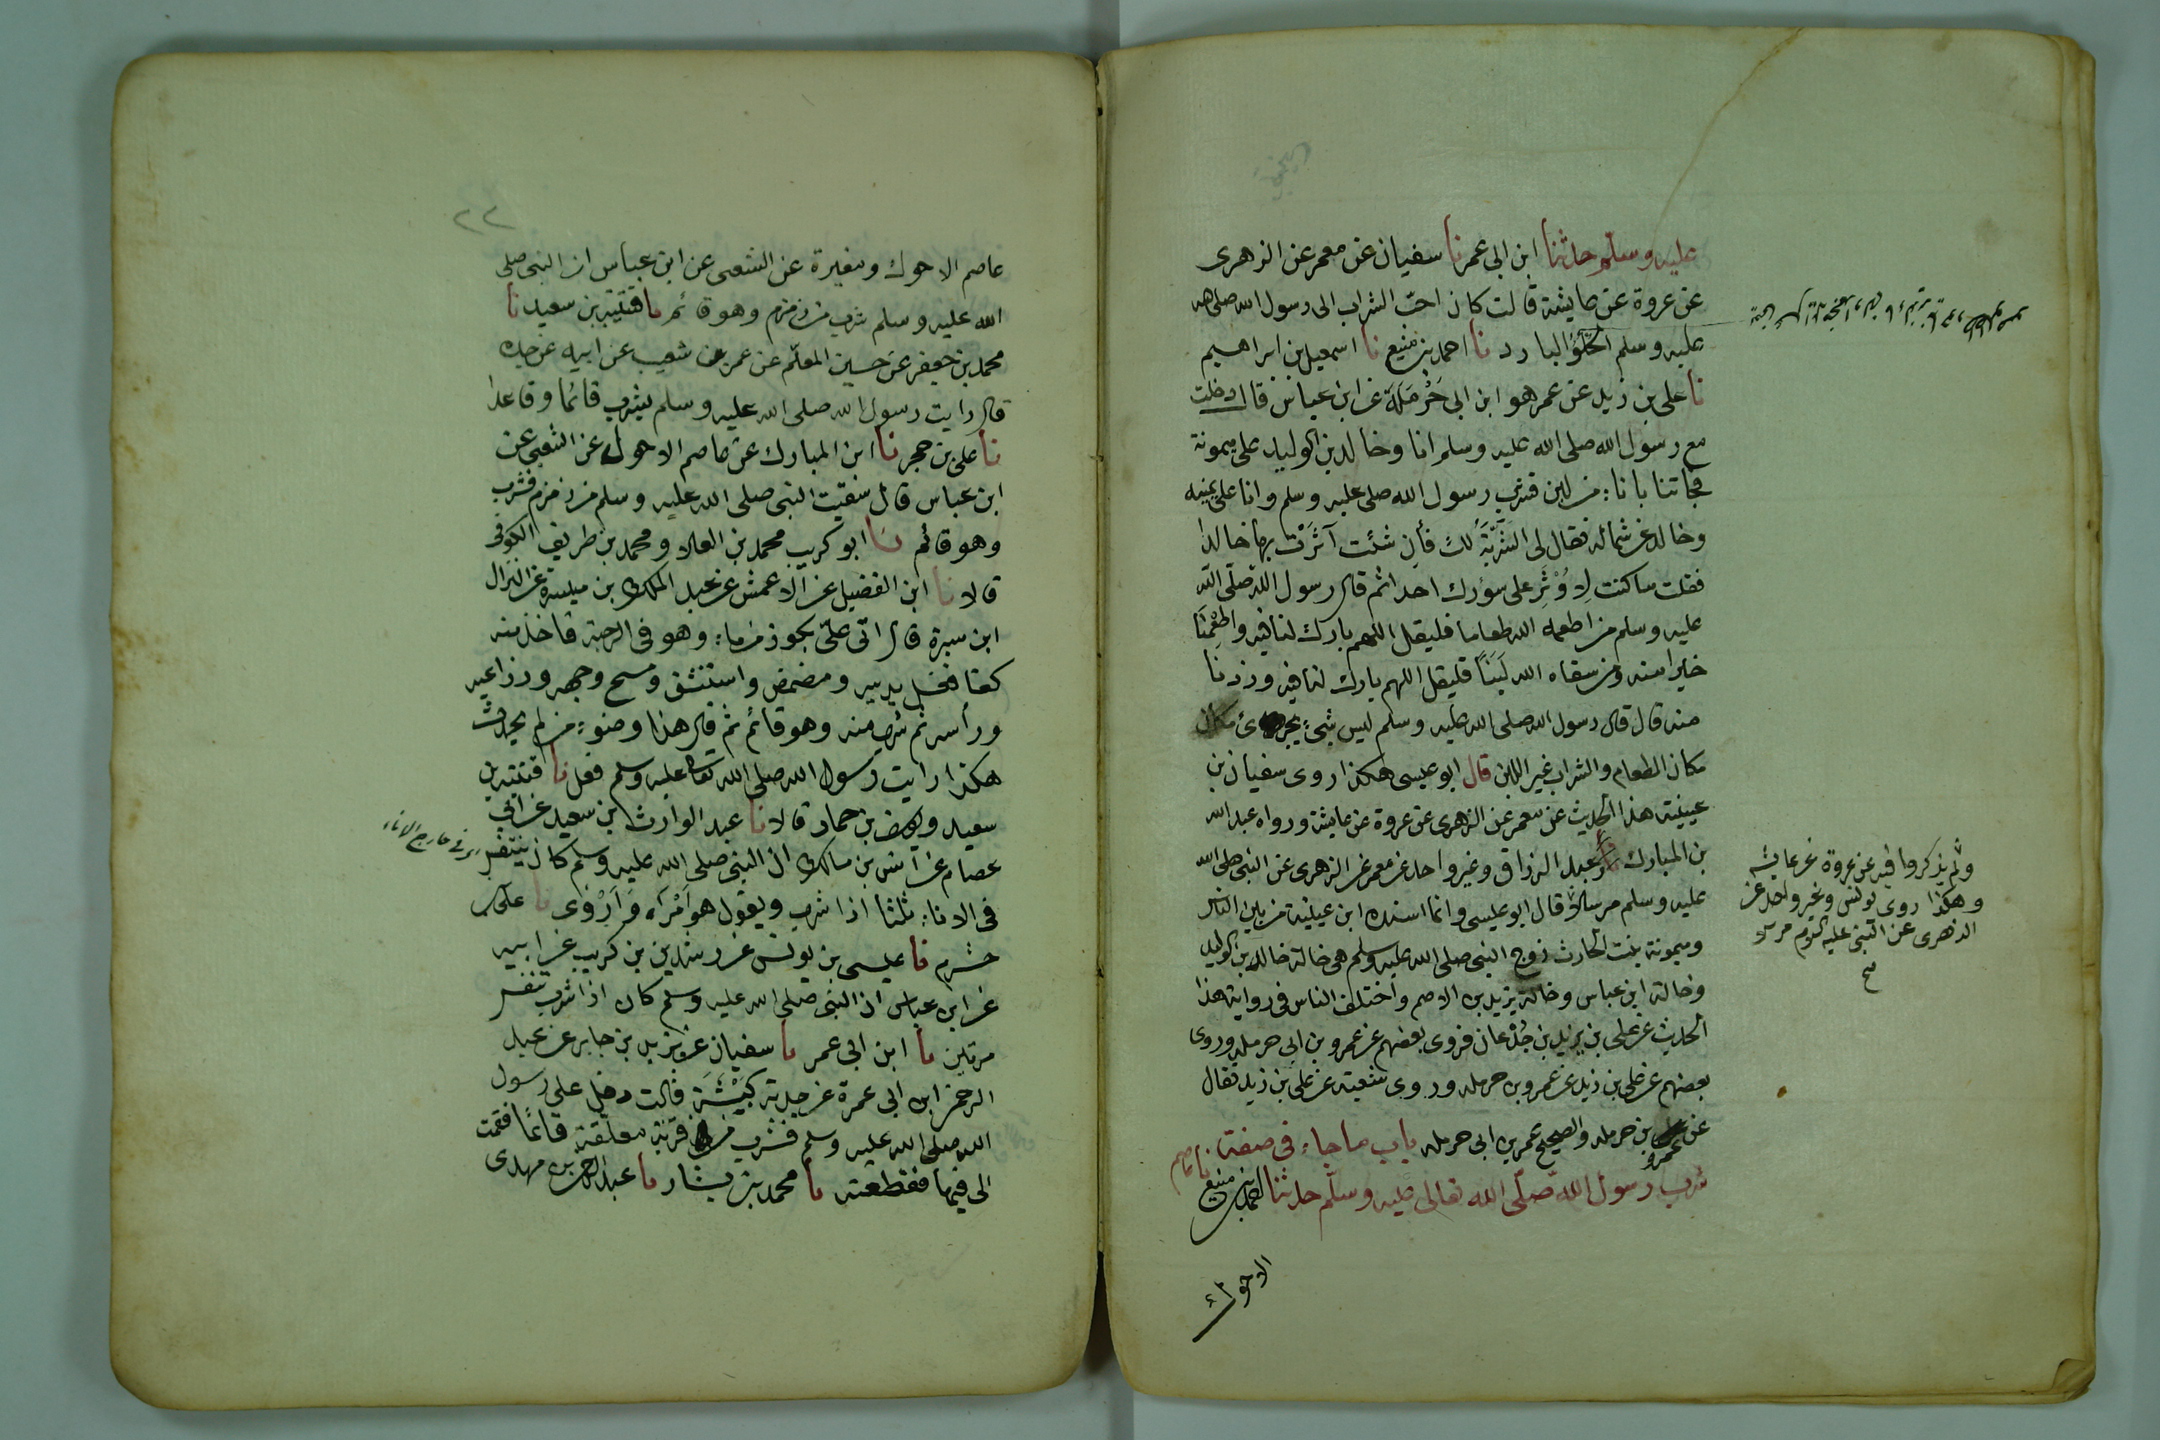 عليه وسلم حدثنا ابن ابي عمر نا سفيان عن معمر عن الزهرى
عن عروة عن عايشة قالت كان احبّ الشراب الى رسول الله صلى الله
عليه وسلم الحُلوُ البارد نا احمد بن منيع نا اسمعيل بن ابراهيم
نا على بن زيد عن عمر هو ابن ابى حَرْمَلَة عن ابن عباس قال دخلت
مع رسول الله صلى الله عليه وسلم انا وخالد بن الوليد على ميمونة
فجاتنا باناء من لبن فشرب رسول الله صلى عليه وسلم وانا على يمينه
وخالد عن شماله فقال لى الشَّرْبَةُ لك فأن شئت آثَرْتَ بها خالدا
فقلت ما كنت لِاُوْثِرَ على سؤرك احدا ثم قال رسول الله صلّى الله
عليه وسلم من اطعمه الله طعاما فليقل اللهم بارك لنا فيه واطْعِمْنَا
خيرا منه ومن سقاه الله لَبَنًا فليقل اللهم بارك لنا فيه وزدنا
منه قال قال رسول الله صلى الله عليه وسلم ليس شئ يجزئ مكان
مكان الطعام والشراب غير اللبن قال ابو عيسى هكذا روى سفيان بن
عيينة هذا الحديث عن معمر عن الزهرى عن عروة عن عايشة ورواه عبد الله
بن المبارك وعبد الرزاق وغير واحد عن معمر عن الزهرى عن النبى صلى الله
عليه وسلم مرسلا قال ابو عيسى وانما اسنده ابن عيينة من بين الناس
وميمونة بنت الحارث زوج النبى صلى الله عليه وسلم هى خالة خالد بن الوليد
وخالة ابن عباس وخالة يزيد بن الاصم واختلف الناس فى رواية هذا
الحديث عن على بن يزيد بن جُدْعان فروى بعضهم عن عمرو بن ابى حرمله وروى
بعضهم عن على بن زيد عن عمرو بن حرمله وروى شعبة عن على بن زيد فقال
عن عمرو بن حرمله والصحيح عمر بن ابى حرمله باب ما جاء فى صفة
شرب رسول الله صلّى الله تعالى عليه وسلّم حدثنا احمد بن منيع نا عاصم
الاحول
ولم يذكروا فيه عن عروة عن عايشه
وهكذا روى يونس وغير واحد عن
الزهرى عن النبى عليه السلام مرسلا
صح
٢٢
عاصم الاحول ومغيرة عن الشعبى عن ابن عباس ان النبى صلى
الله عليه وسلم شرب من زمزم وهو قائم نا قتيبة بن سعيد نا
محمد بن جعفر عن حسين المعلّم عن عمر بن شعيب عن ابيه عن جده
قال رايت رسول الله صلى الله عليه وسلم يشرب قائما وقاعدا
نا على بن حجر نا ابن المبارك عن عاصم الاحول عن الشعبى عن
ابن عباس قال سقيت النبى صلى الله عليه وسلم من زمزم فشرب
وهو قائم نا ابو كريب محمد بن العلا ومحمد بن طريف الكوفى
قالا نا ابن الفضيل عن الاعمش عن عبد الملك بن ميسرة عن النزال
ابن سبرة قال اتى علىّ بكوز من ماء وهو فى الرحبة فاخذ منه
كفا فغسل يديه ومضمض واستنشق ومسح وجهه وذراعيه
ورأسه ثم شرب منه وهو قائم ثم قال هذا وضوء من لم يحدث
هكذا رايت رسول الله صلى الله تعالى عليه وسلم فعل نا قتيبة بن
سعيد ويوسف بن حماد قالا نا عبد الوارث ابن سعيد عن ابى
عصام عن انس بن مالك ان النبى صلى الله عليه وسلم كان يتنفس
فى الاناء ثلثا اذا شرب ويقول هو اَمْرَأ وَاَرْوى نا على بن
خشرم نا عيسى بن يونس عن رشدين بن كريب عن ابيه
عن ابن عباس ان النبى صلى الله عليه وسلم كان اذا شرب تنفس
مرتين نا ابن ابى عمر نا سفيان عن يزيد بن جابر عن عبد
الرحمن ابن ابى عمرة عن جدته كَبْشَةَ قالت دخل على رسول
الله صلى الله عليه وسلم فشرب من قربة معلقة قائما فقمت
الى فيها فقطعته نا محمد بن بشار نا عبد الرحمن بن مهدى
فى خارج الاناء